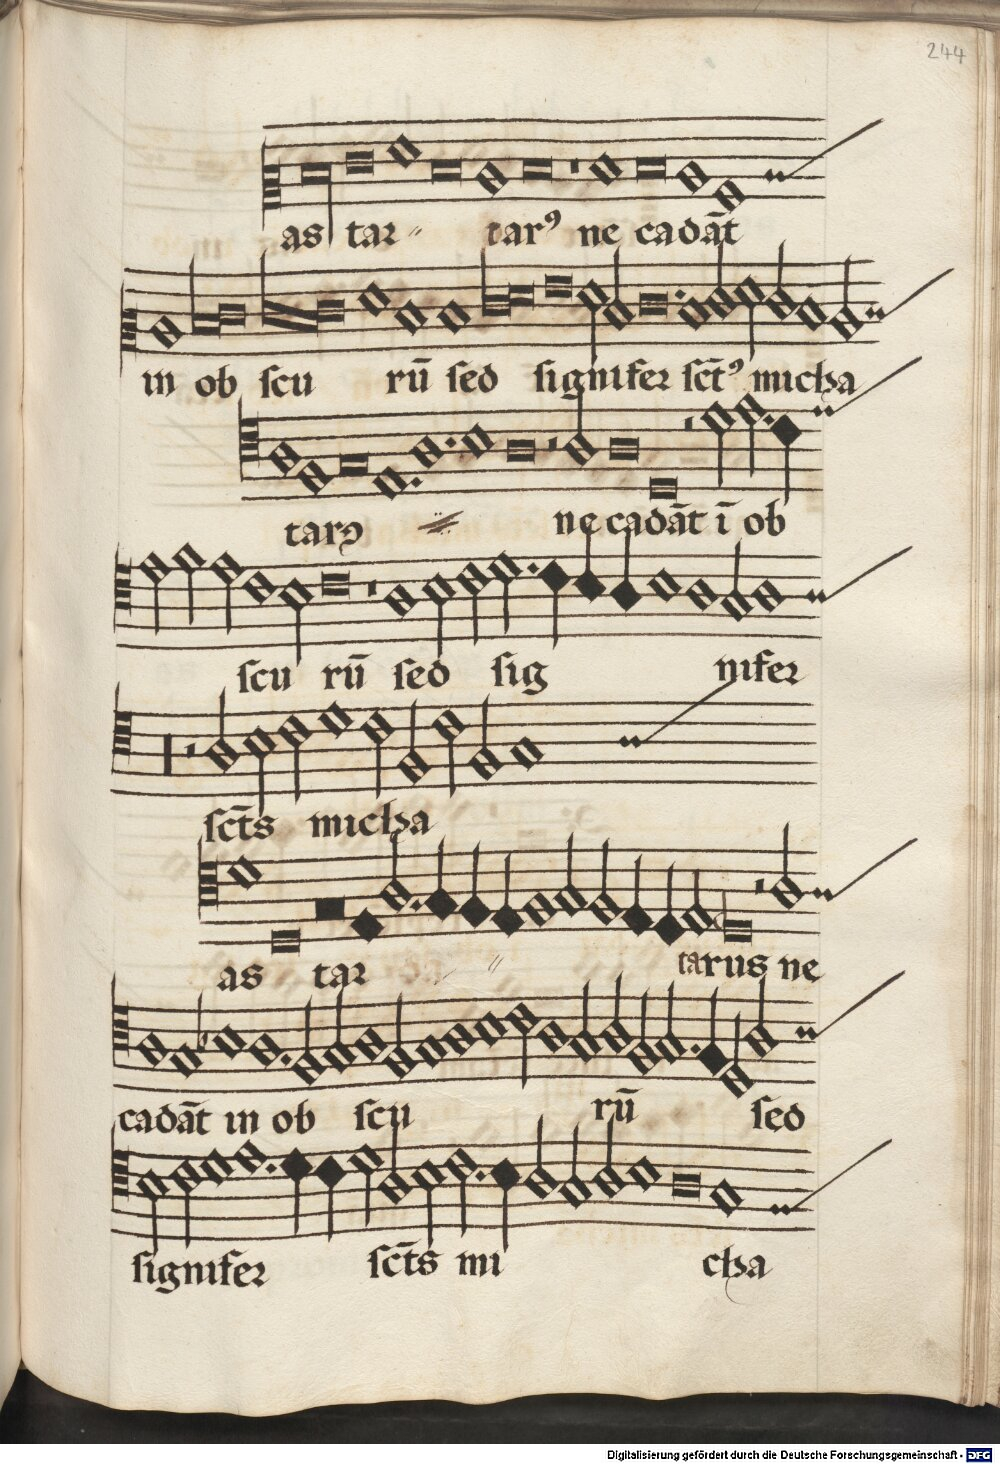 244
as tar tarꝰ ne cadāt
in ob scu rū sed signifer sct̄ꝰ micha
tarꝰ ne cadāt ī ob
scu rū sed sig nifer
sct̄s micha
as tar tarus ne
cadāt in ob scu rū sed
signifer sct̄s mi cha
Digitalisierung gefördert durch die Deutsche Forschungsgemeinschaft - DFG